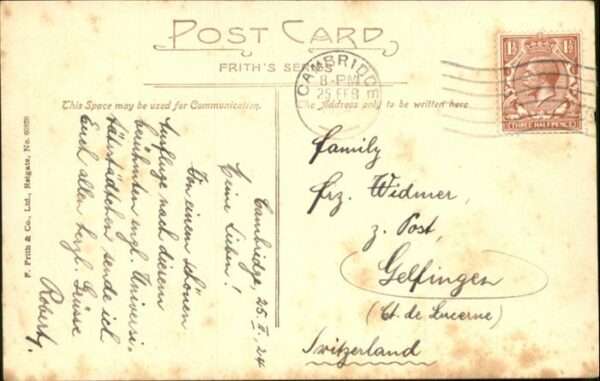 POST CARD
FRITH'S SERIES
This Space may be used for Communication.
The Address only to be written here
CAMBRIDGE
8-PM
25 FEB
1½ 1½
THREE HALFPENCE
Cambridge, 25. II. 24
Meine Lieben!
Von einem schönen
Ausfluge nach diesem
berühmten engl. Universi-
tätsstädtchen sende ich
Euch allen herzl. Grüsse
Robert.
Family
frz. Widmer,
z. Post,
Gelfingen
(Ct. de Lucerne)
Switzerland
F. Frith & Co., Ltd., Reigate, No.